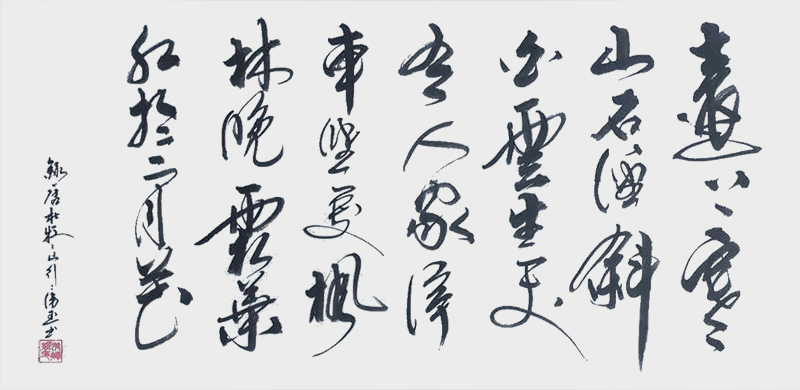 遠上寒
山石徑斜
白雲生處
有人家停
車坐愛楓
林晚霜葉
紅於二月花
錄唐杜牧山行